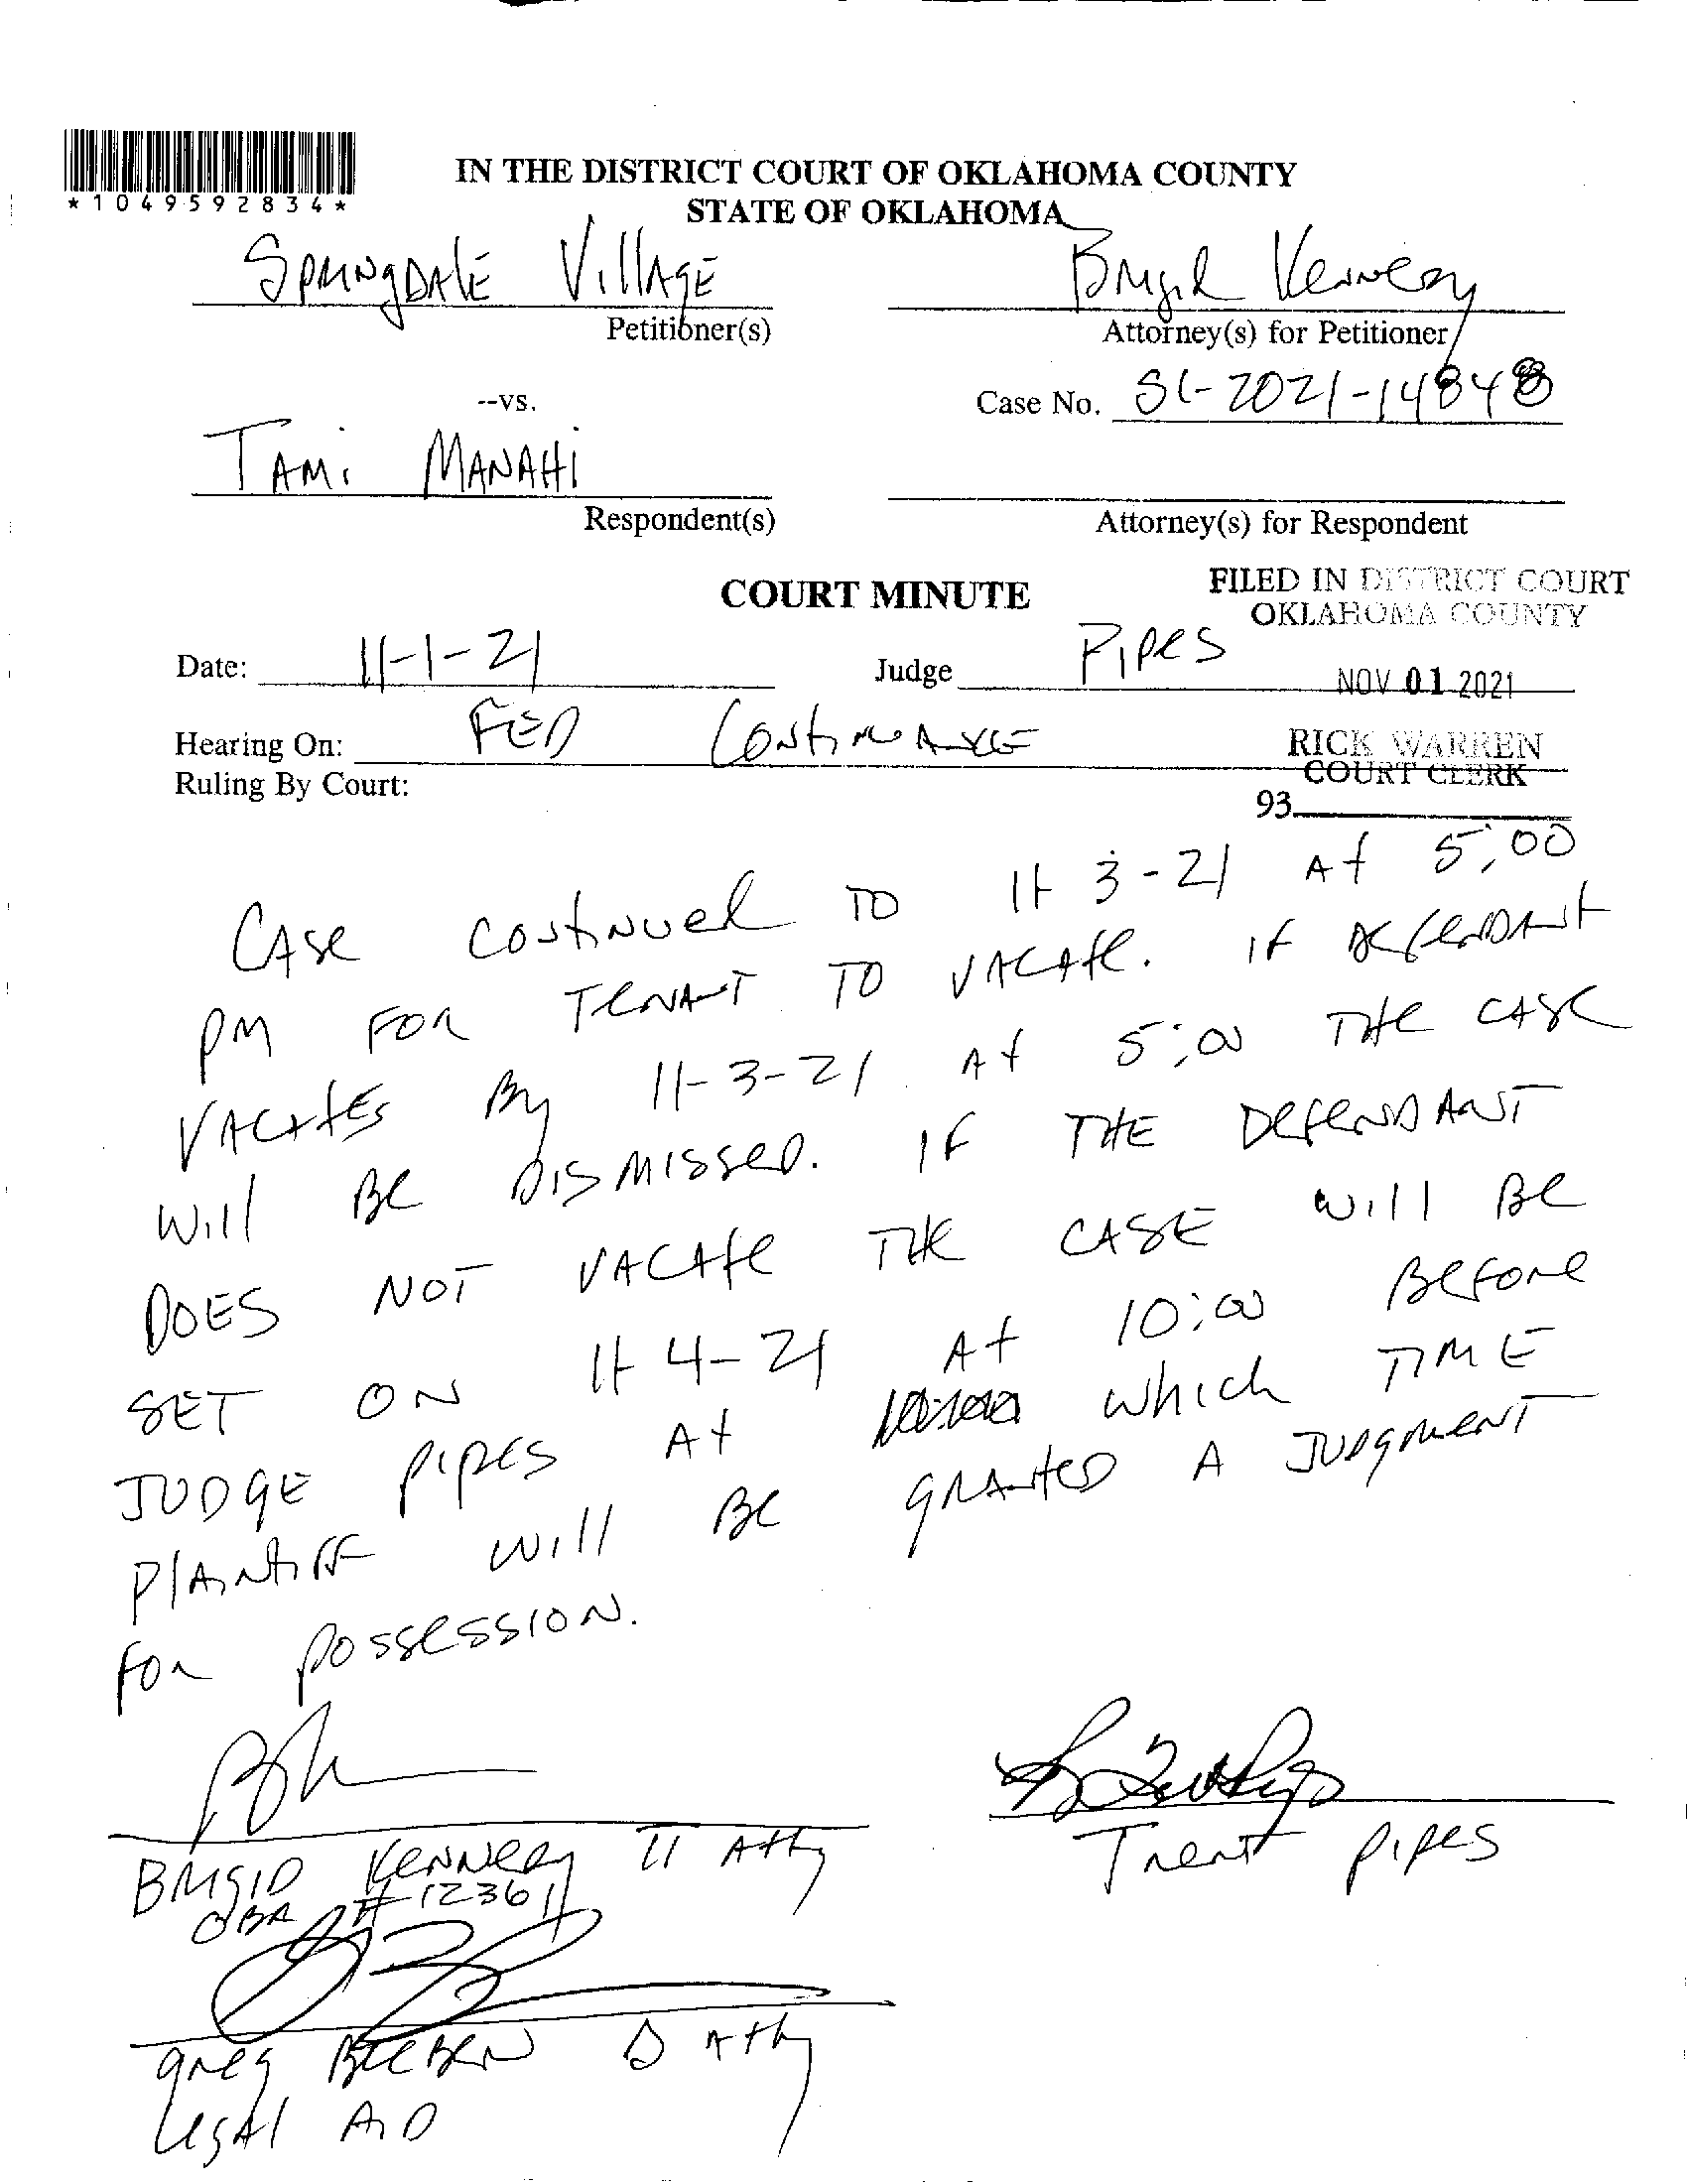 *1049592834*
IN THE DISTRICT COURT OF OKLAHOMA COUNTY
STATE OF OKLAHOMA
SPRINGDALE VILLAGE
Petitioner(s)
Brigid Kennedy
Attorney(s) for Petitioner
--vs.
Case No. SC-2021-14848
TAMI MANAHI
Respondent(s)
Attorney(s) for Respondent
COURT MINUTE
FILED IN DISTRICT COURT
OKLAHOMA COUNTY
Date: 11-1-21
Judge Pipes
NOV 01 2021
Hearing On: FED Continuance
RICK WARREN
COURT CLERK
Ruling By Court:
93
CASE CONTINUED TO 11-3-21 At 5:00
PM FOR TENANT TO VACATE. IF DEFENDANT
VACATES By 11-3-21 At 5:00 THE CASE
Will BE DISMISSED. IF THE DEFENDANT
DOES NOT VACATE THE CASE Will BE
SET ON 11-4-21 At 10:00 BEFORE
JUDGE PIPES At which TIME
PLAINTIFF will BE GRANTED A JUDGMENT
FOR POSSESSION.
BRIGID KENNEDY Π Atty
OBA #12361
Trent Pipes
Greg Δ Atty
Legal AID